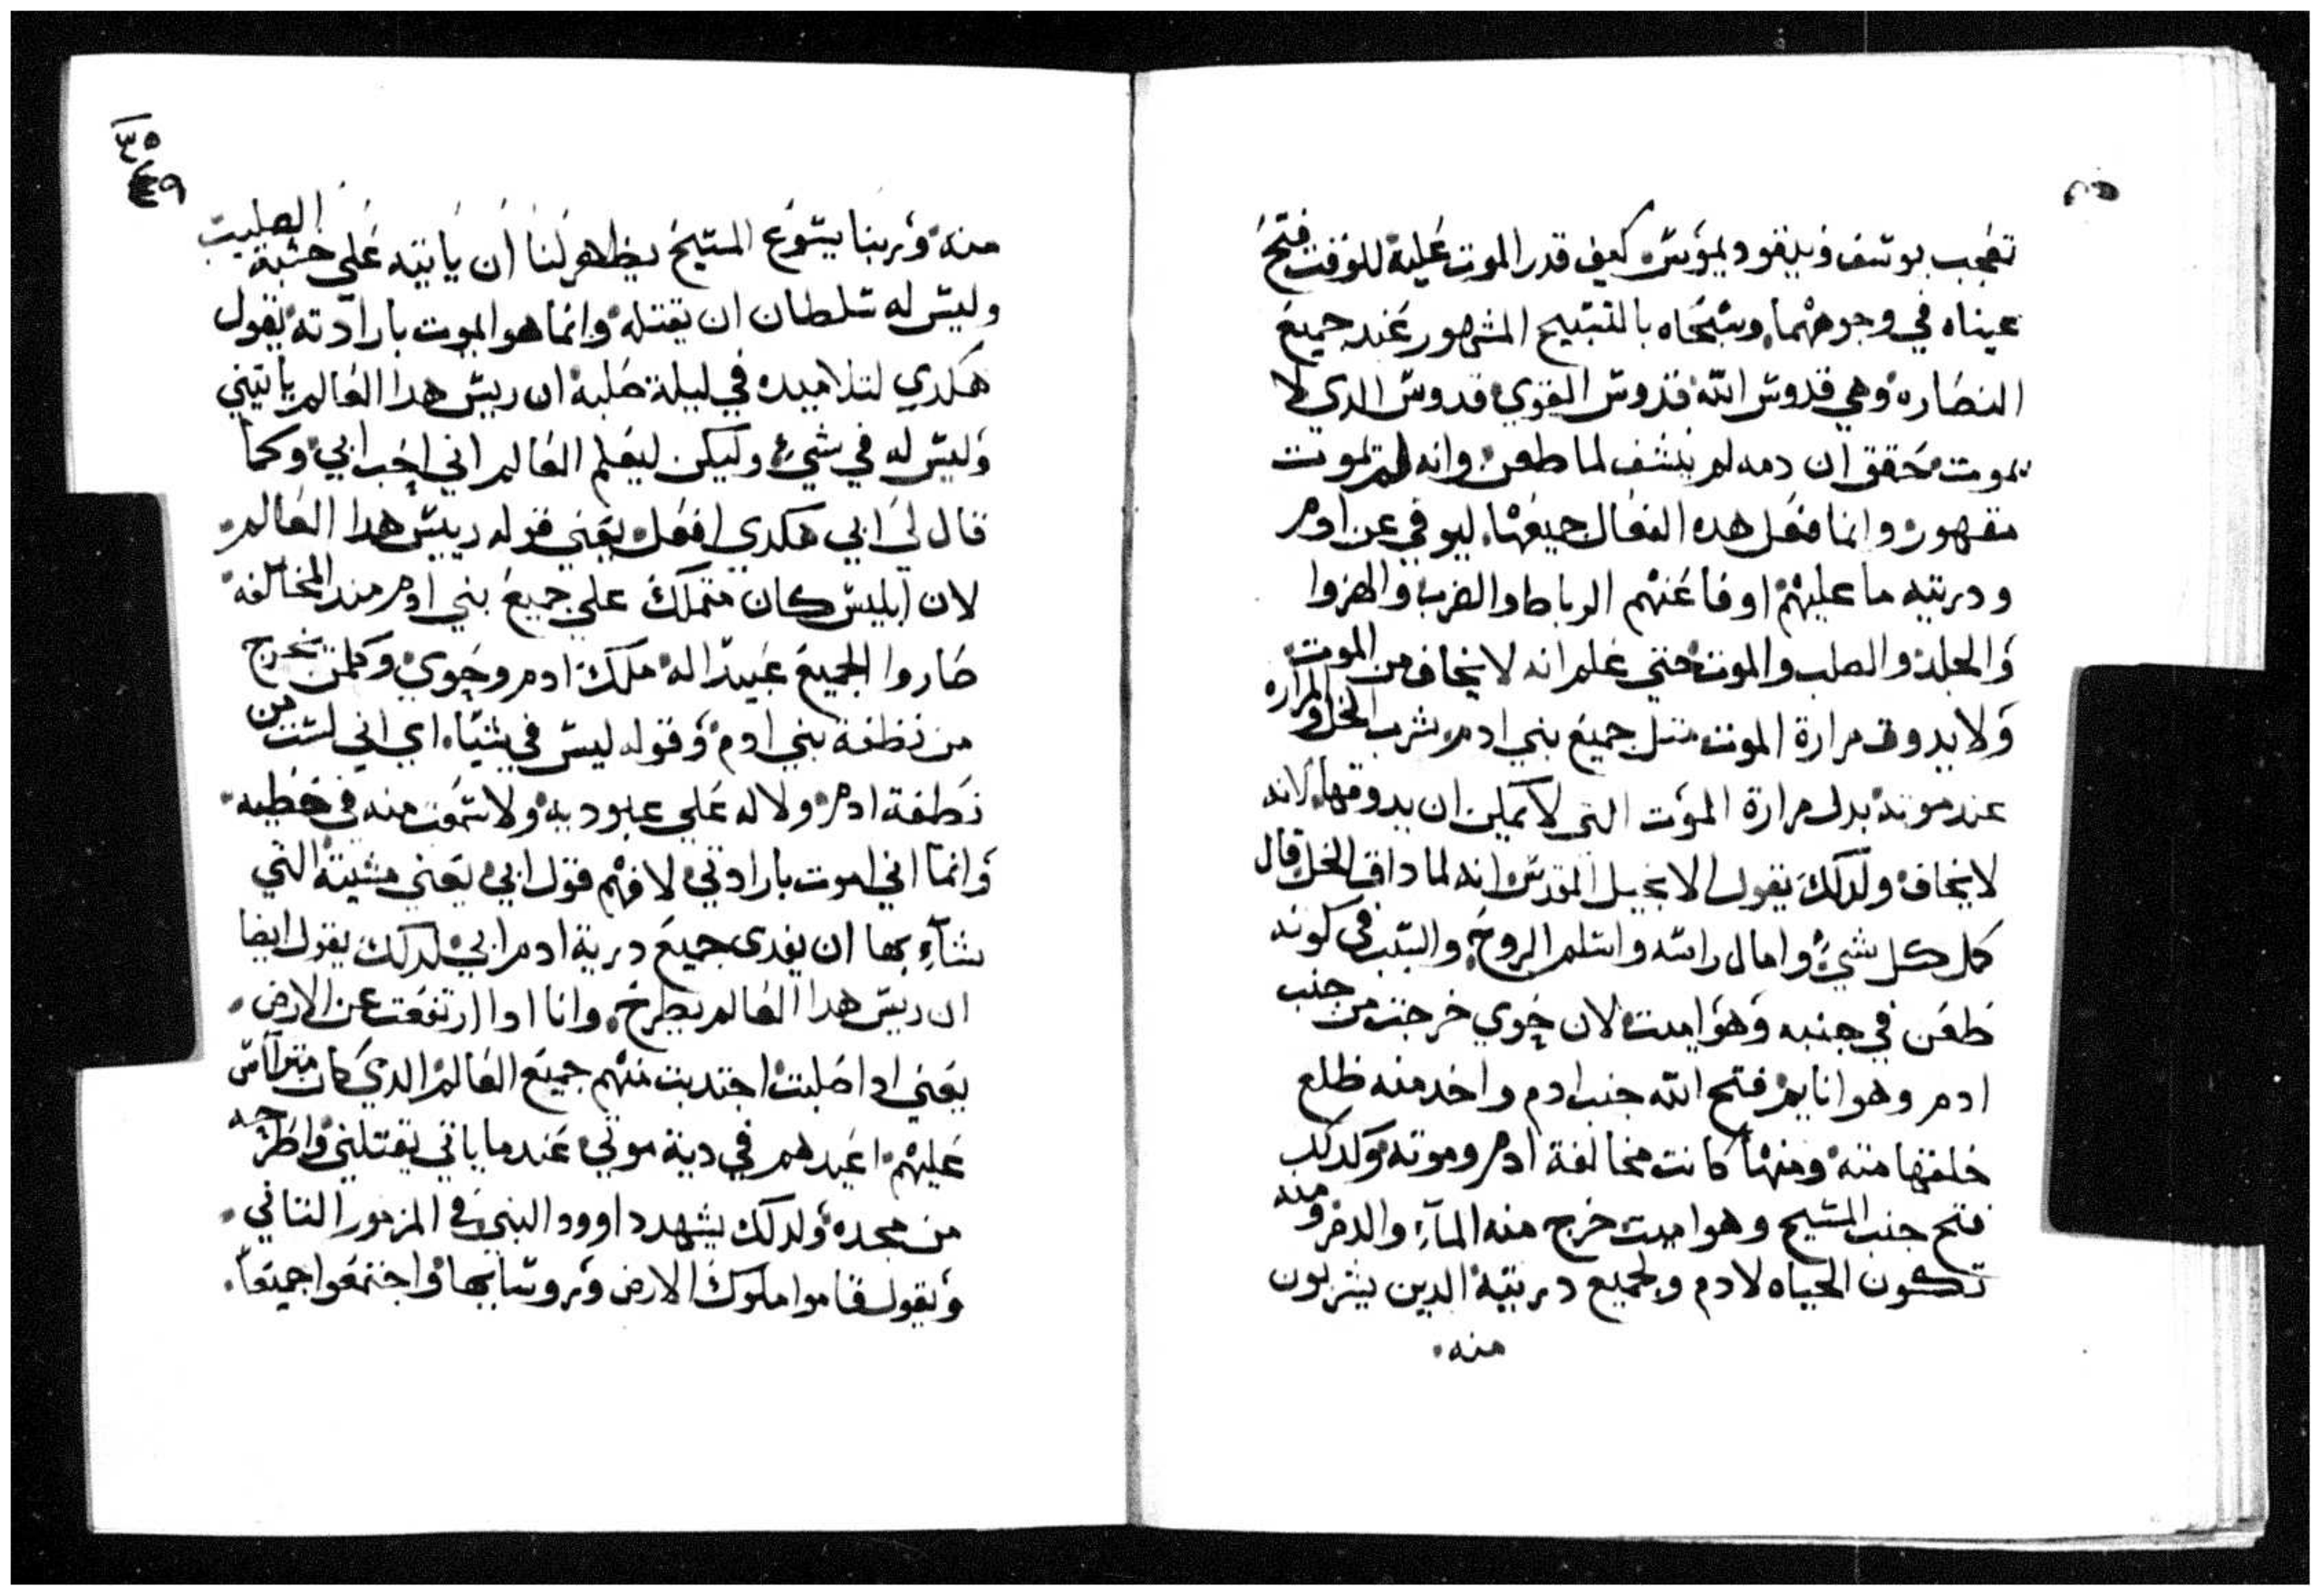 تعجب يوسف ونيقوديموس كيف قدر الموت عليه للوقت فتح
عيناه في وجوههما. وسبحاه بالتسبيح المشهور عند جميع
النصاره وهي قدوس الله قدوس القوي قدوس الدي لا
يموت محقق ان دمه لم ينشف لما طعن وانه لم يموت
مقهور وانما فعل هده الفعال جميعها. ليوفي عن ادم
ودريته ما عليهم اوفا عنهم الرباط والضرب والهزوا
والجلد والصلب والموت حتي علم انه لا يخاف من الموت
ولا يدوق مرارة الموت متل جميع بني ادم شرب الخل والمراره
عند موته بدل مرارة الموت التي لا يمكن ان يدوقها. لانه
لا يخاف ولدلك يقول الانجيل المقدس انه لما داق الخل قال
كمل كل شيء وامال راسه واسلم الروح. والسبب في كونه
طعن في جنبه وهو ميت لان حوي خرجت من جنب
ادم وهو نايم فتح الله جنب ادم واخد منه ظلع
خلقها منه ومنها كانت مخالفة ادم وموته وكدلك
فتح جنب المسيح وهو ميت خرج منه المآء والدم ومنه
تكون الحياه لادم ولجميع دريته الدين يشربون
منه.
٣٥
٤٩
منه وربنا يسوع المسيح يظهر لنا ان ياتيه علي خشبة الصليب
وليس له سلطان ان يقتله وانما هو الموت بارادته يقول
هكدي لتلاميده في ليلة صلبه ان ريس هدا العالم ياتيني
وليس له في شيء وليكن ليعلم العالم اني احب ابي وكما
قال لي ابي هكدي افعل يعني قوله رييس هدا العالم.
لان ابليس كان متملك علي جميع بني ادم مند المخالفة
صاروا الجميع عبيدا له ملك ادم وحوي وكلمن يخرج
من نطفة بني ادم وقوله ليس في شيا. اي اني لست من
نطفة ادم ولا له علي عبوديه ولا سمعت منه في خطيه.
وانما اني اموت بارادتي لافهم قول ابي يعني مشيته التي
شآء بها ان يفدي جميع درية ادم ابي لدلك يقول ايضا
ان ريس هدا العالم يطرح. وانا ادا ارتفعت عن الارض.
يعني ادا صلبت اجتدبت منهم جميع العالم الدي كان متراس
عليهم اعيدهم في دية موتي عندما ياتي يقتلني واطرحه
من مجده ولدلك يشهد داوود النبي في المزمور التاني.
ويقول قاموا ملوك الارض وروسايها واجتمعوا جميعا.